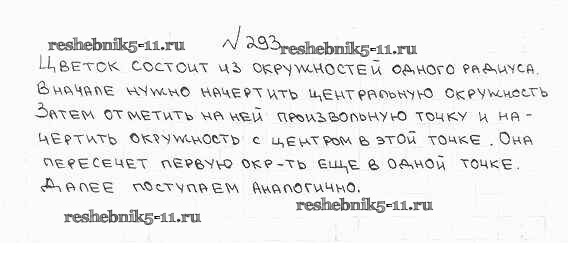 № 293
reshebnik5-11.ru
reshebnik5-11.ru
Цветок состоит из окружностей одного радиуса.
Вначале нужно начертить центральную окружность
Затем отметить на ней произвольную точку и на-
чертить окружность с центром в этой точке. Она
пересечет первую окр-ть еще в одной точке.
Далее поступаем аналогично.
reshebnik5-11.ru
reshebnik5-11.ru